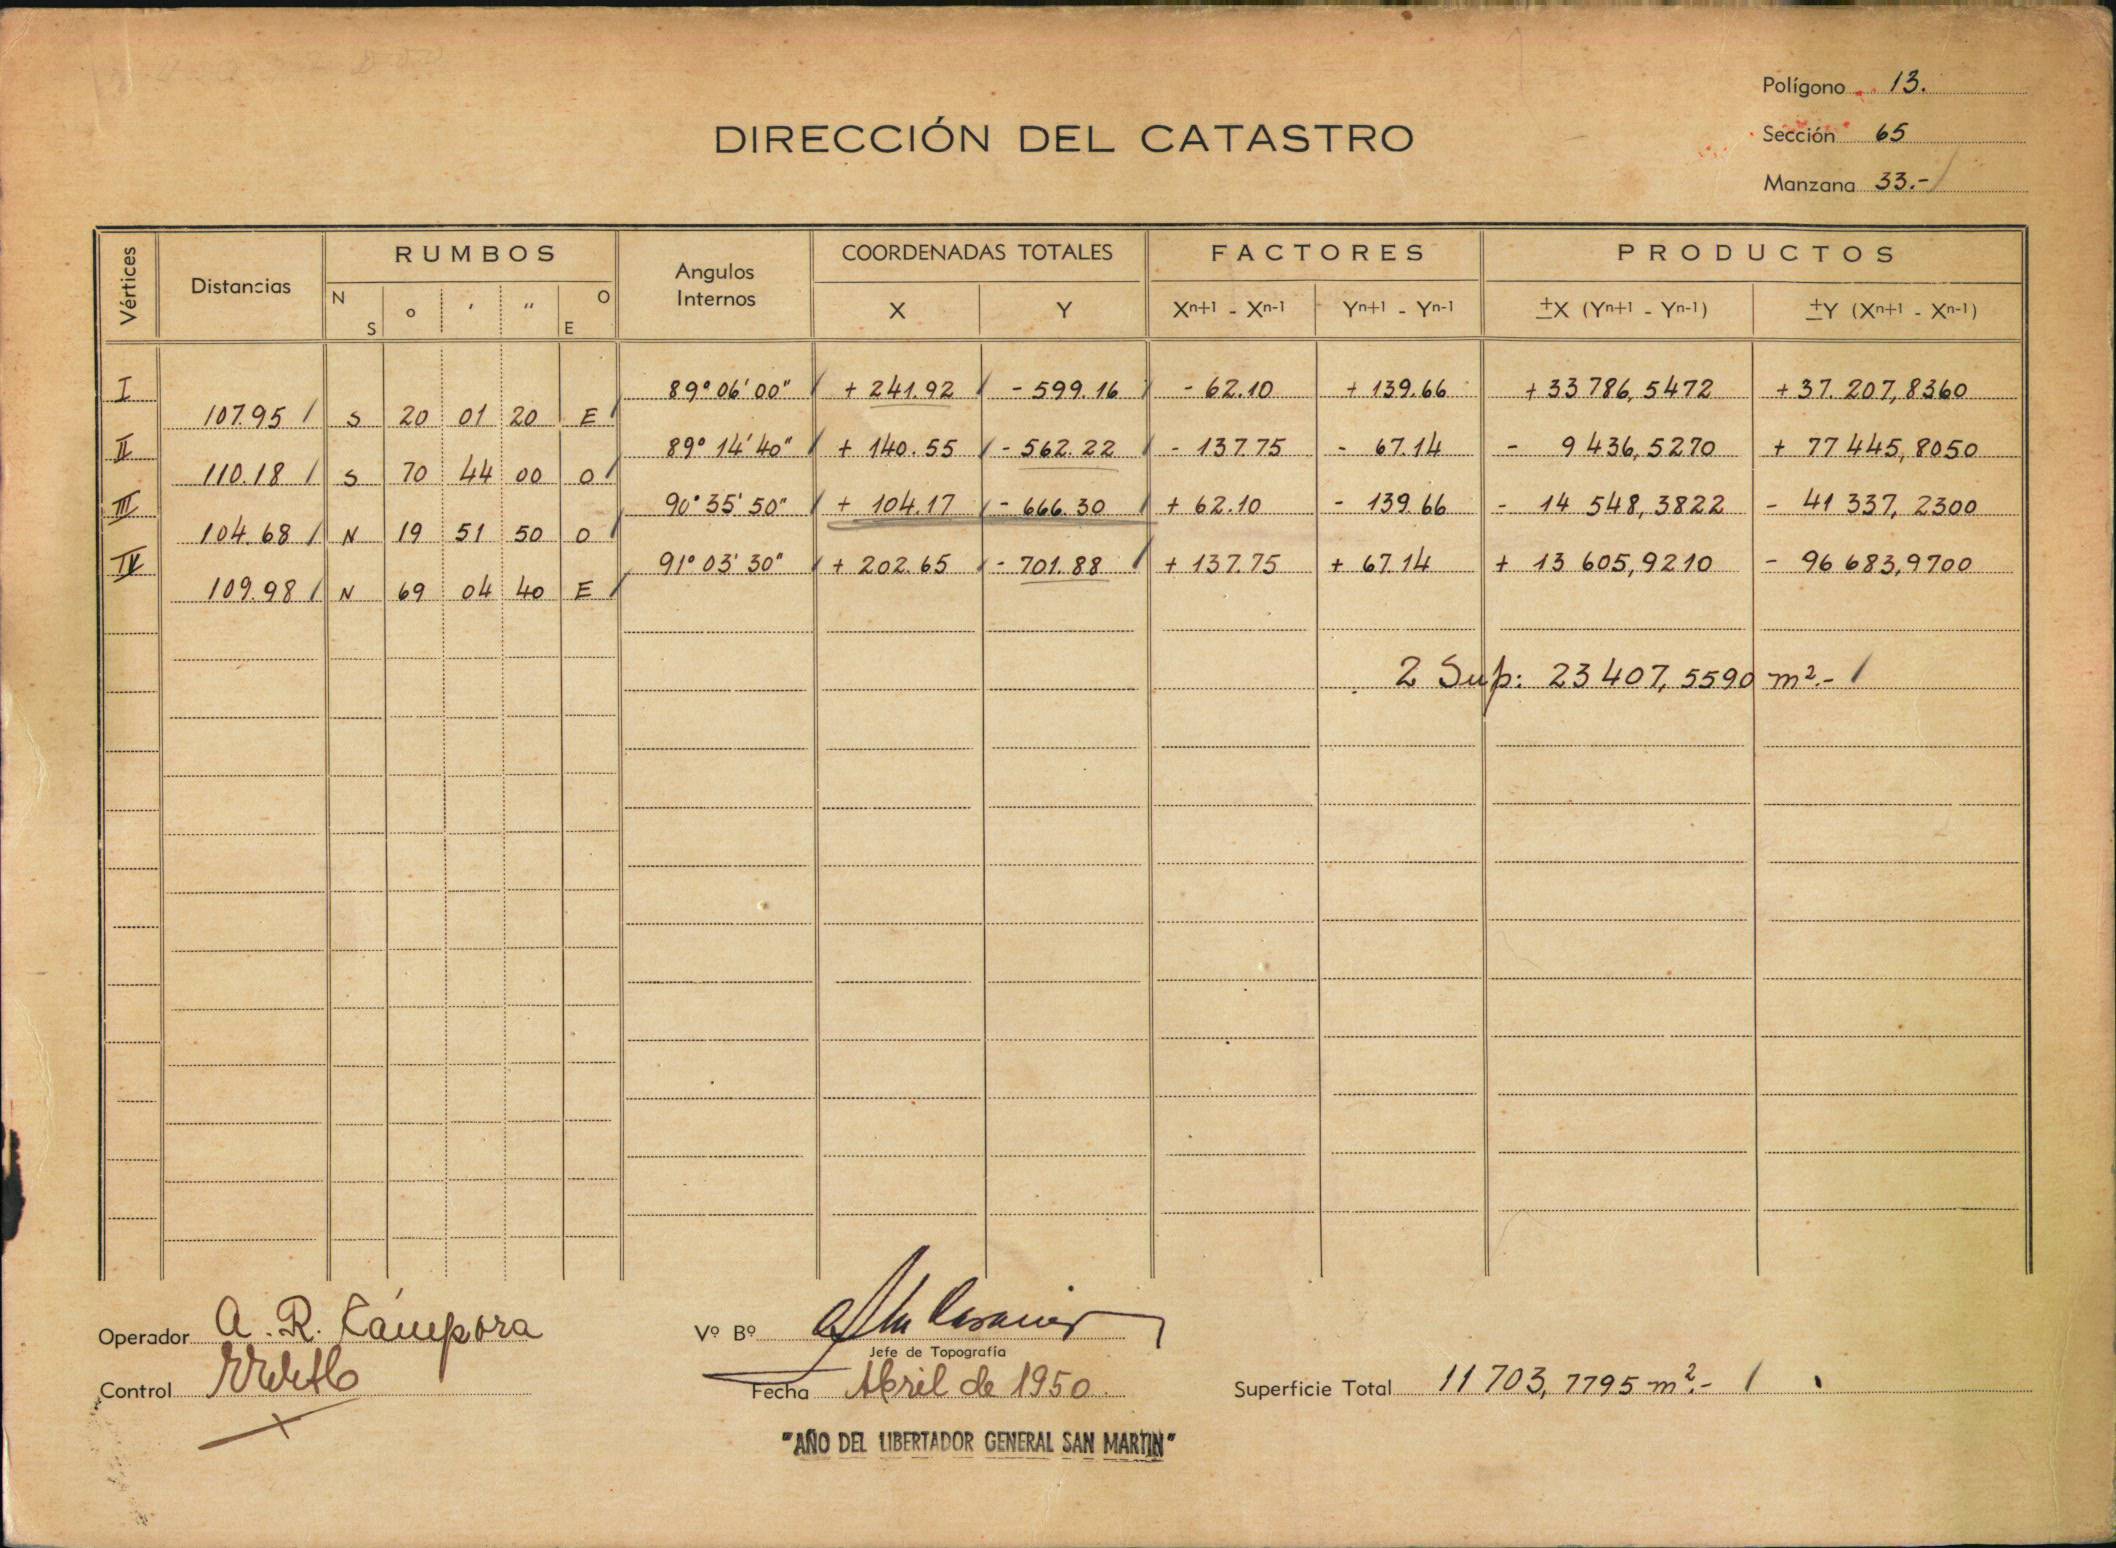 Polígono 13.
DIRECCIÓN DEL CATASTRO
Sección 65
Manzana 33.-
Vértices Distancias RUMBOS Angulos Internos COORDENADAS TOTALES FACTORES PRODUCTOS
N S o ' " O E X Y Xn+1 - Xn-1 Yn+1 - Yn-1 ±X (Yn+1 - Yn-1) ±Y (Xn+1 - Xn-1)
I 89° 06' 00" + 241.92 - 599.16 - 62.10 + 139.66 + 33 786,5472 + 37.207,8360
107.95 S 20 01 20 E
II 89° 14' 40" + 140.55 - 562.22 - 137.75 - 67.14 - 9 436,5270 + 77 445,8050
110.18 S 70 44 00 O
III 90° 35' 50" + 104.17 - 666.30 + 62.10 - 139.66 - 14 548,3822 - 41 337,2300
104.68 N 19 51 50 O
IV 91° 03' 30" + 202.65 - 701.88 + 137.75 + 67.14 + 13 605,9210 - 96 683,9700
109.98 N 69 04 40 E
2 Sup: 23 407,5590 m².-
Operador A. R. Cámpora
Vº Bº
Jefe de Topografía
Control
Fecha Abril de 1950.
Superficie Total 11 703,7795 m².-
"AÑO DEL LIBERTADOR GENERAL SAN MARTIN"